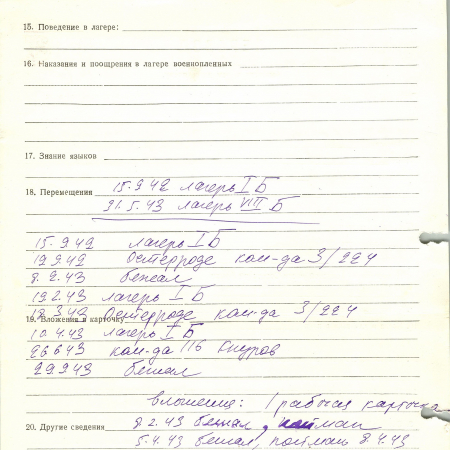 15. Поведение в лагере:
16. Наказания и поощрения в лагере военнопленных
17. Знание языков
18. Перемещения 15.9 42 лагерь I Б
31.5.43 лагерь VIII Б
15.9 42 лагерь I Б
19.9.42 Остерроде ком-да 3/224
8.2.43 бежал
19.2.43 лагерь I Б
Остерроде ком-да 3/224
19. Вложения в карточку
10.4.43 лагерь I Б
26 6 43 ком-да 116 Кнуров
29.9.43 бежал
вложение: 1 рабочая карточка
20. Другие сведения 8.2.43 бежал, пойман
5.4.43 бежал, пойман 8.4.43